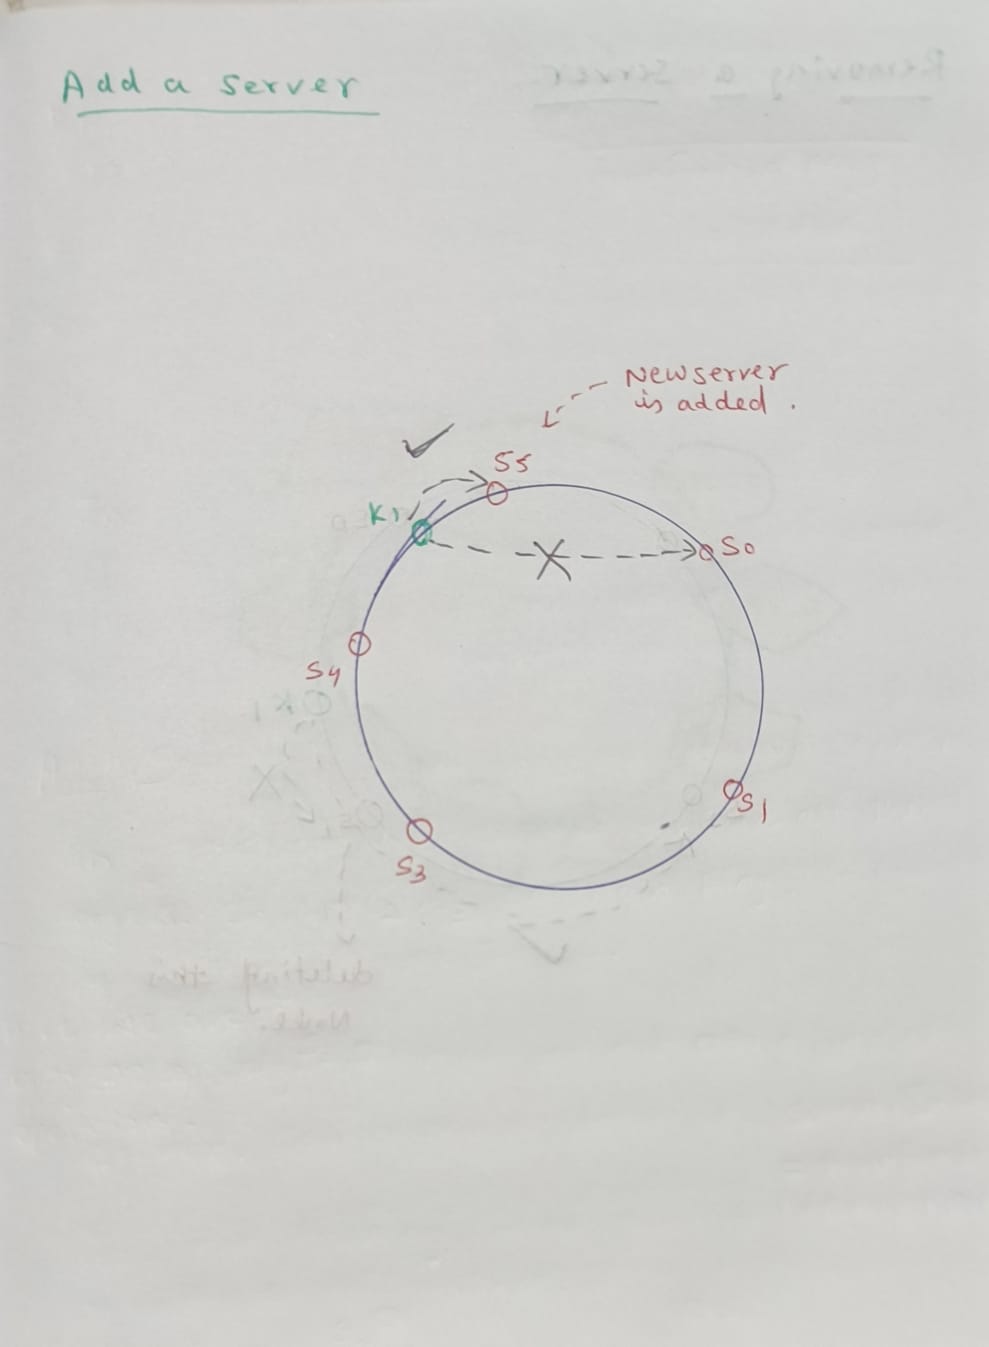 Add a server
New server
is added .
S5
K1
S0
S4
S1
S3